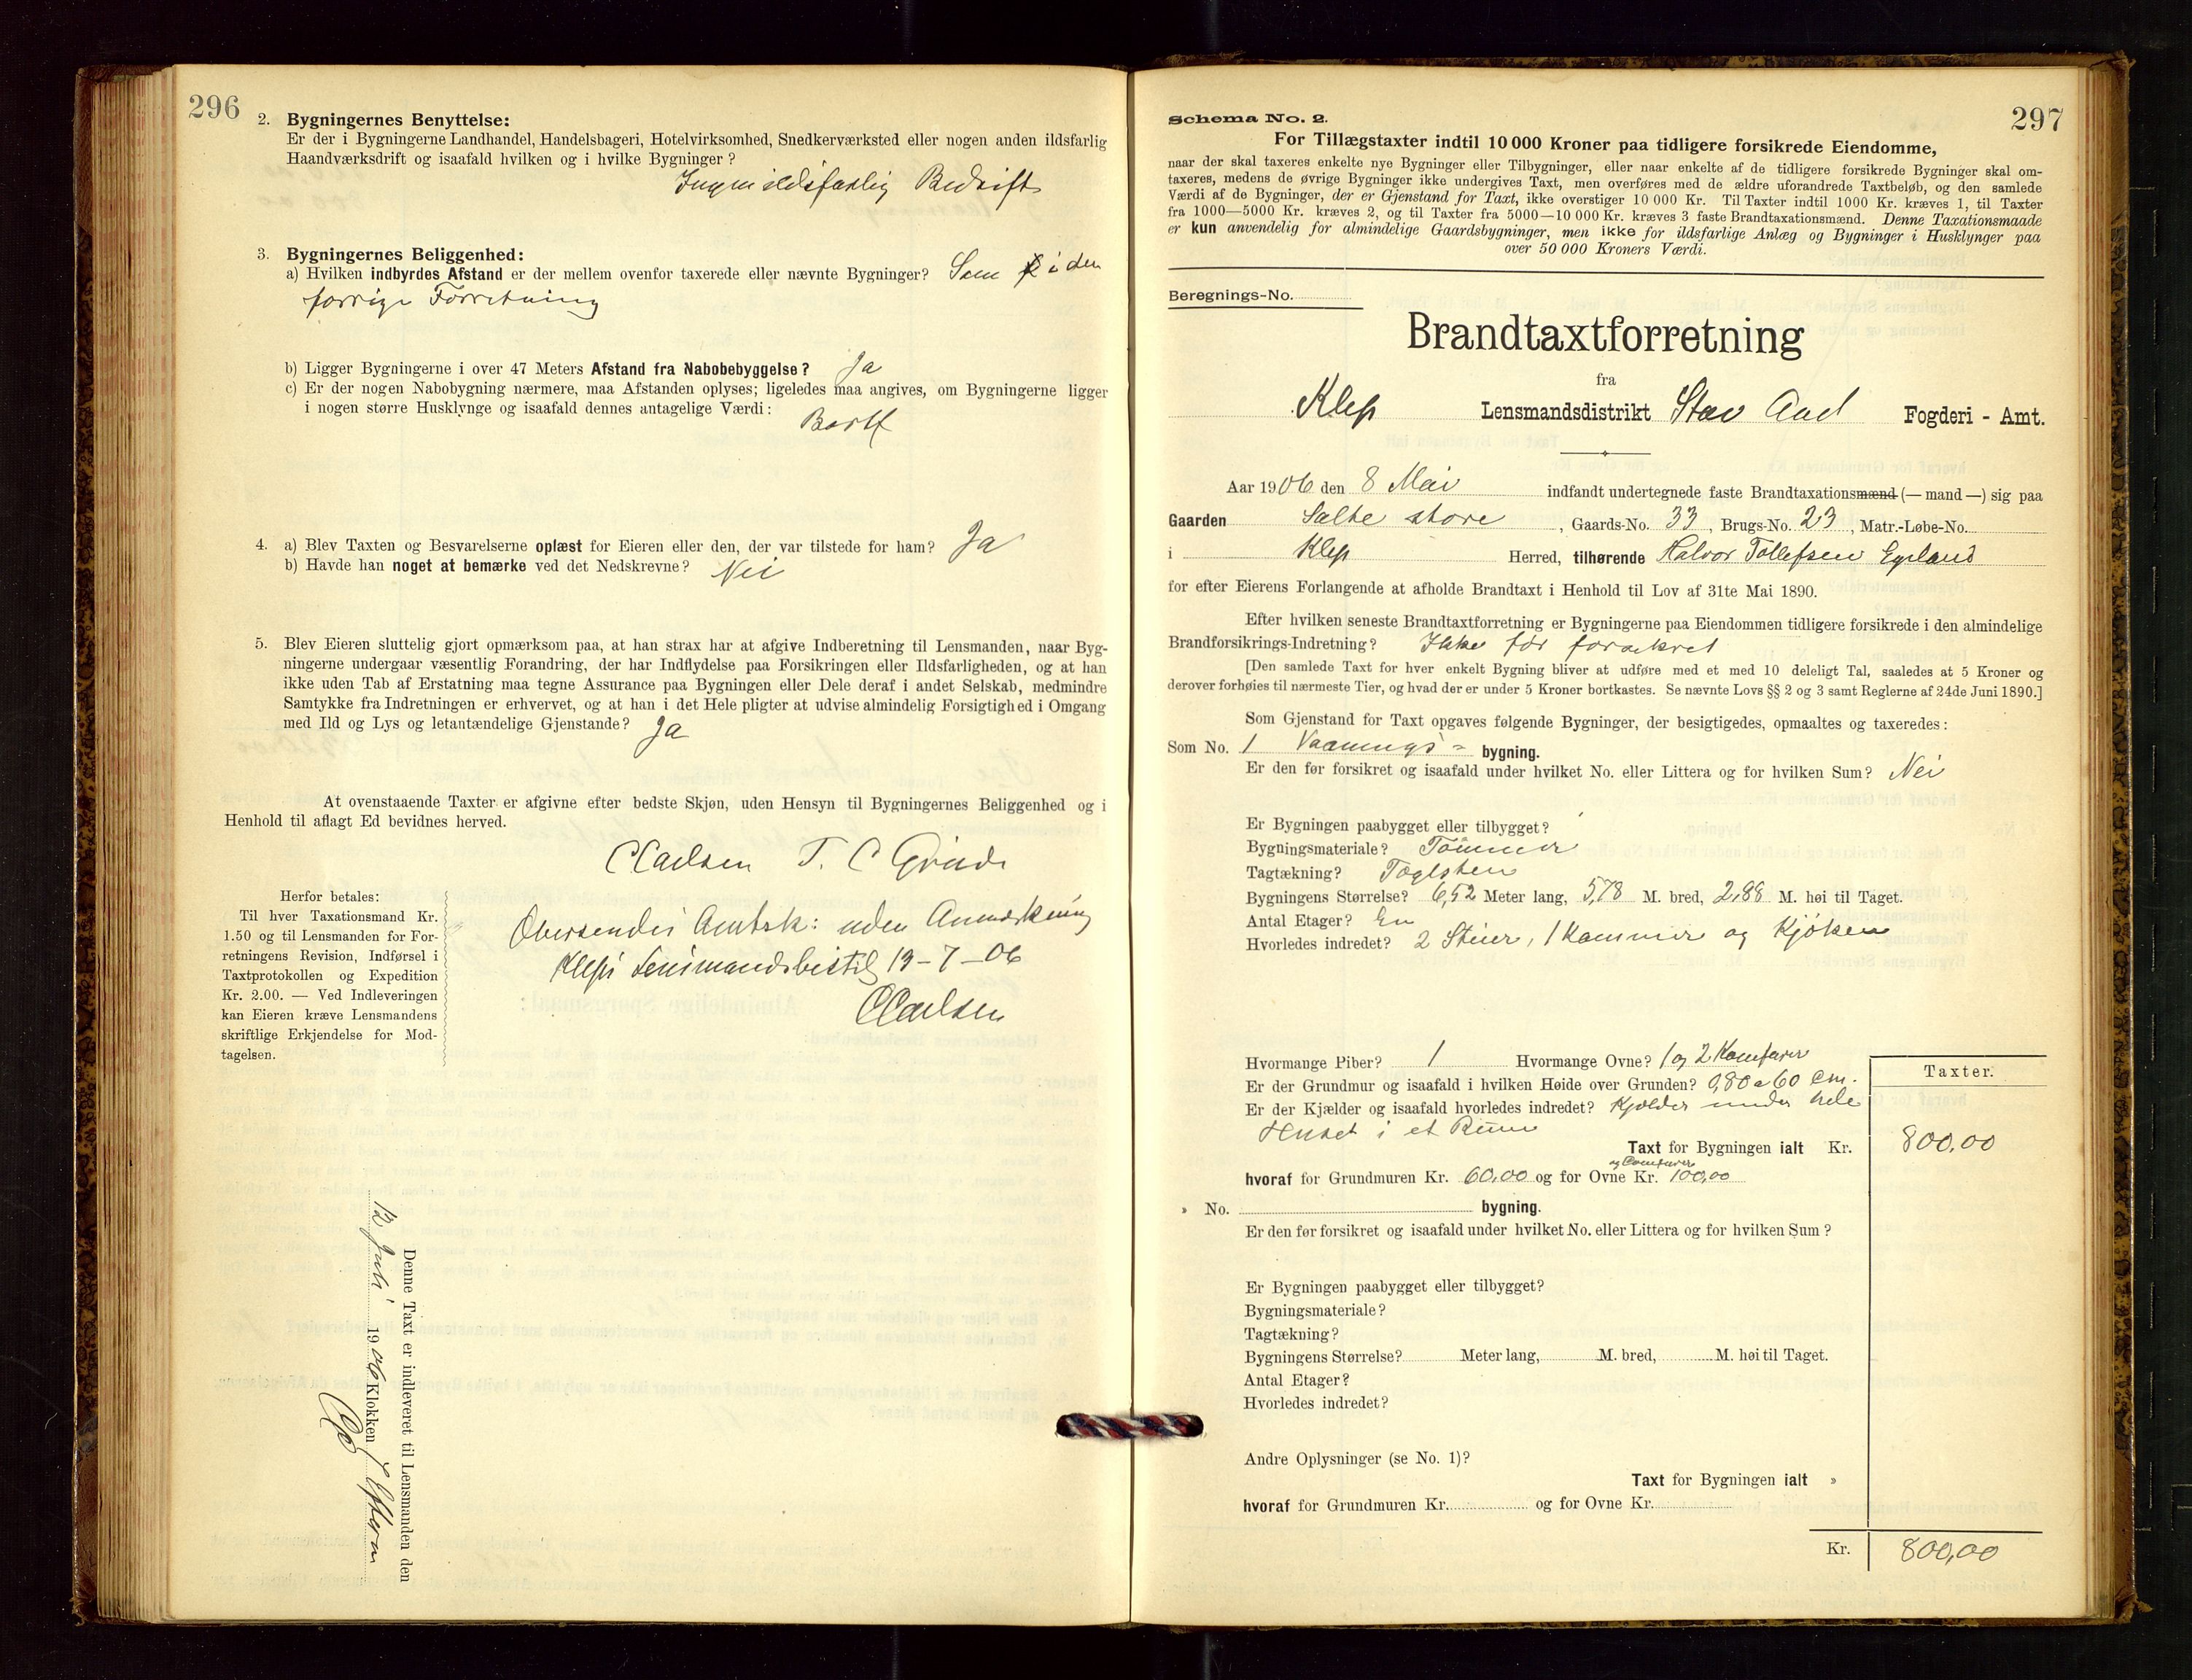 296
2. Bygningernes Benyttelse:
Er der i Bygningerne Landhandel, Handelsbageri, Hotelvirksomhed, Snedkerværksted eller nogen anden ildsfarlig
Haandværksdrift og isaafald hvilken og i hvilke Bygninger?
Ingen ildsfarlig Bedrift
3. Bygningernes Beliggenhed:
a) Hvilken indbyrdes Afstand er der mellem ovenfor taxerede eller nævnte Bygninger? Som i den
forrige Forretning
b) Ligger Bygningerne i over 47 Meters Afstand fra Nabobebyggelse? Ja
c) Er der nogen Nabobygning nærmere, maa Afstanden oplyses; ligeledes maa angives, om Bygningerne ligger
i nogen større Husklynge og isaafald dennes antagelige Værdi:
Bortf
4. a) Blev Taxten og Besvarelserne oplæst for Eieren eller den, der var tilstede for ham? Ja
b) Havde han noget at bemærke ved det Nedskrevne? Nei
5. Blev Eieren sluttelig gjort opmærksom paa, at han strax har at afgive Indberetning til Lensmanden, naar Byg-
ningerne undergaar væsentlig Forandring, der har Indflydelse paa Forsikringen eller Ildsfarligheden, og at han
ikke uden Tab af Erstatning maa tegne Assurance paa Bygningen eller Dele deraf i andet Selskab, medmindre
Samtykke fra Indretningen er erhvervet, og at han i det Hele pligter at udvise almindelig Forsigtighed i Omgang
med Ild og Lys og letantændelige Gjenstande? Ja
At ovenstaaende Taxter er afgivne efter bedste Skjøn, uden Hensyn til Bygningernes Beliggenhed og i
Henhold til aflagt Ed bevidnes herved.
CCarlsen T. C Grude
Herfor betales:
Til hver Taxationsmand Kr.
1.50 og til Lensmanden for For-
retningens Revision, Indførsel i
Taxtprotokollen og Expedition
Kr. 2.00. — Ved Indleveringen
kan Eieren kræve Lensmandens
skriftlige Erkjendelse for Mod-
tagelsen.
Oversendes Amtsk: uden Anmærkning
Kleps Lensmandsbestil 13-7-06
CCarlsen
Denne Taxt er indleveret til Lensmanden den
12 Juli 1906 Klokken 1 Efterm
297
Schema No. 2.
For Tillægstaxter indtil 10 000 Kroner paa tidligere forsikrede Eiendomme,
naar der skal taxeres enkelte nye Bygninger eller Tilbygninger, eller naar enkelte af de tidligere forsikrede Bygninger skal om-
taxeres, medens de øvrige Bygninger ikke undergives Taxt, men overføres med de ældre uforandrede Taxtbeløb, og den samlede
Værdi af de Bygninger, der er Gjenstand for Taxt, ikke overstiger 10 000 Kr. Til Taxter indtil 1000 Kr. kræves 1, til Taxter
fra 1000—5000 Kr. kræves 2, og til Taxter fra 5000—10 000 Kr. kræves 3 faste Brandtaxationsmænd. Denne Taxationsmaade
er kun anvendelig for almindelige Gaardsbygninger, men ikke for ildsfarlige Anlæg og Bygninger i Husklynger paa
over 50 000 Kroners Værdi.
Beregnings-No.
Brandtaxtforretning
fra
Klep Lensmandsdistrikt Stav Amt Fogderi - Amt.
Aar 1906 den 8 Mai indfandt undertegnede faste Brandtaxationsmænd (— mand —) sig paa
Gaarden Salte store, Gaards-No. 33, Brugs-No. 23, Matr.-Løbe-No.
i Klep Herred, tilhørende Halvor Tollefsen Egeland
for efter Eierens Forlangende at afholde Brandtaxt i Henhold til Lov af 31te Mai 1890.
Efter hvilken seneste Brandtaxtforretning er Bygningerne paa Eiendommen tidligere forsikrede i den almindelige
Brandforsikrings-Indretning? Ikke før forsikret
[Den samlede Taxt for hver enkelt Bygning bliver at udføre med et med 10 deleligt Tal, saaledes at 5 Kroner og
derover forhøies til nærmeste Tier, og hvad der er under 5 Kroner bortkastes. Se nævnte Lovs §§ 2 og 3 samt Reglerne af 24de Juni 1890.]
Som Gjenstand for Taxt opgaves følgende Bygninger, der besigtigedes, opmaaltes og taxeredes:
Som No. 1 Vaanings- bygning.
Er den før forsikret og isaafald under hvilket No. eller Littera og for hvilken Sum? Nei
Er Bygningen paabygget eller tilbygget?
Bygningsmateriale? Tømmer
Tagtækning? Taglsten
Bygningens Størrelse? 6,52 Meter lang, 5,78 M. bred, 2,88 M. høi til Taget.
Antal Etager? En
Hvorledes indredet? 2 Stuer, 1 Kammer og Kjøken
Hvormange Piber? 1 Hvormange Ovne? 1 og 2 Komfurer
Er der Grundmur og isaafald i hvilken Høide over Grunden? 0,80 a 60 cm.
Er der Kjælder og isaafald hvorledes indredet? Kjelder under hele
Huset i et Rum
Taxter.
Taxt for Bygningen ialt Kr. 800,00
og Comfurer
hvoraf for Grundmuren Kr. 60,00 og for Ovne Kr. 100,00
» No. bygning.
Er den før forsikret og isaafald under hvilket No. eller Littera og for hvilken Sum?
Er Bygningen paabygget eller tilbygget?
Bygningsmateriale?
Tagtækning?
Bygningens Størrelse? Meter lang, M. bred, M. høi til Taget.
Antal Etager?
Hvorledes indredet?
Andre Oplysninger (se No. 1)?
Taxt for Bygningen ialt »
hvoraf for Grundmuren Kr. og for Ovne Kr.
Kr. 800,00